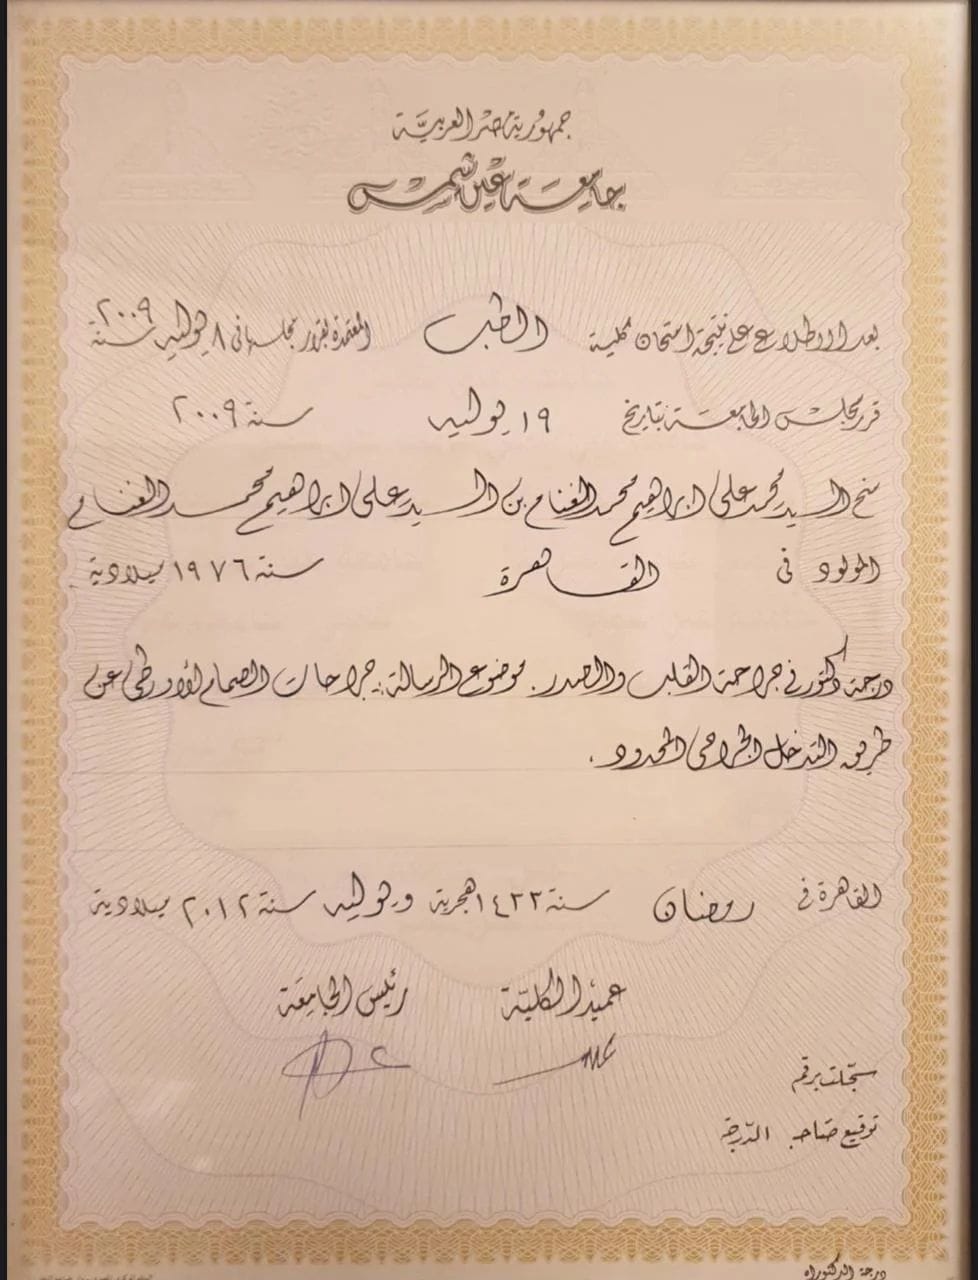 جمهورية مصر العربية
جامعة عين شمس
بعد الاطلاع على نتيجة امتحان كلية الطب المعتمدة بقرار مجلسها في ٨ يوليه سنة ٢٠٠٩
قرر مجلس الجامعة بتاريخ ١٩ يوليه سنة ٢٠٠٩
منح السيد محمد على ابراهيم محمد الغنام بن السيد على ابراهيم محمد الغنام
المولود في القاهرة سنة ١٩٧٦ ميلادية
درجة دكتور في جراحة القلب والصدر. موضوع الرسالة: جراحات الصمام الأورطى عن
طريق التدخل الجراحى المحدود.
القاهرة في رمضان سنة ١٤٣٣ هجرية ويوليه سنة ٢٠١٢ ميلادية
عميد الكلية رئيس الجامعة
سجلت برقم
توقيع صاحب الدرجة
درجة الدكتوراه